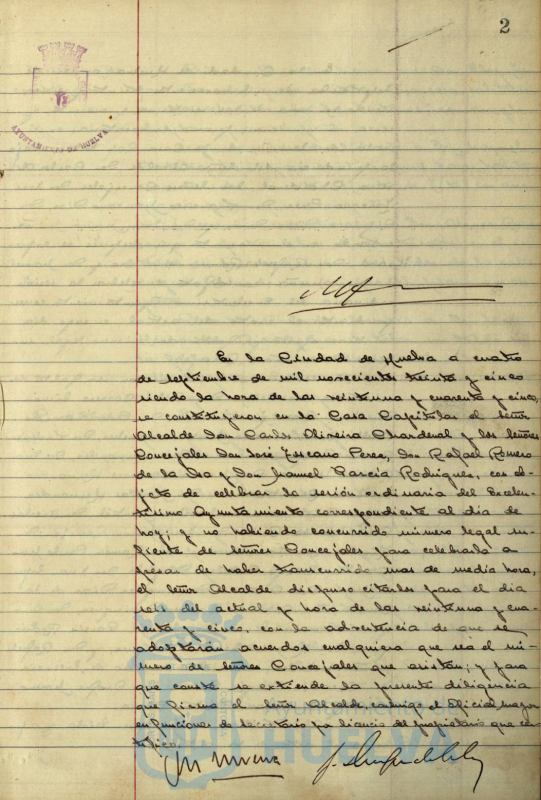 2
AYUNTAMIENTO DE HUELVA
En la Ciudad de Huelva a cuatro
de septiembre de mil novecientos treinta y cinco
siendo la hora de las veintiuna y cuarenta y cinco,
se constituyeron en la Casa Capitular el Señor
Alcalde Don Carlos Oliveira Chardenal y los Señores
Concejales Don José Toscano Perez, Don Rafael Romero
de la Osa y Don Manuel Garcia Rodriguez, con ob-
jeto de celebrar la sesión ordinaria del Excelen-
tisimo Ayuntamiento correspondiente al dia de
hoy; y no habiendo concurrido número legal su-
ficiente de Señores Concejales para celebrarla a
pesar de haber transcurrido mas de media hora,
el Señor Alcalde dispuso citarlos para el dia
seis del actual y hora de las veintiuna y cua-
renta y cinco, con la advertencia de que se
adoptarán acuerdos cualquiera que sea el nú-
mero de Señores Concejales que asistan; y para
que conste se extiende la presente diligencia
que firma el Señor Alcalde, conmigo el Oficial mayor
en funciones de Secretario por licencia del propietario que cer-
tifico.
HUELVA